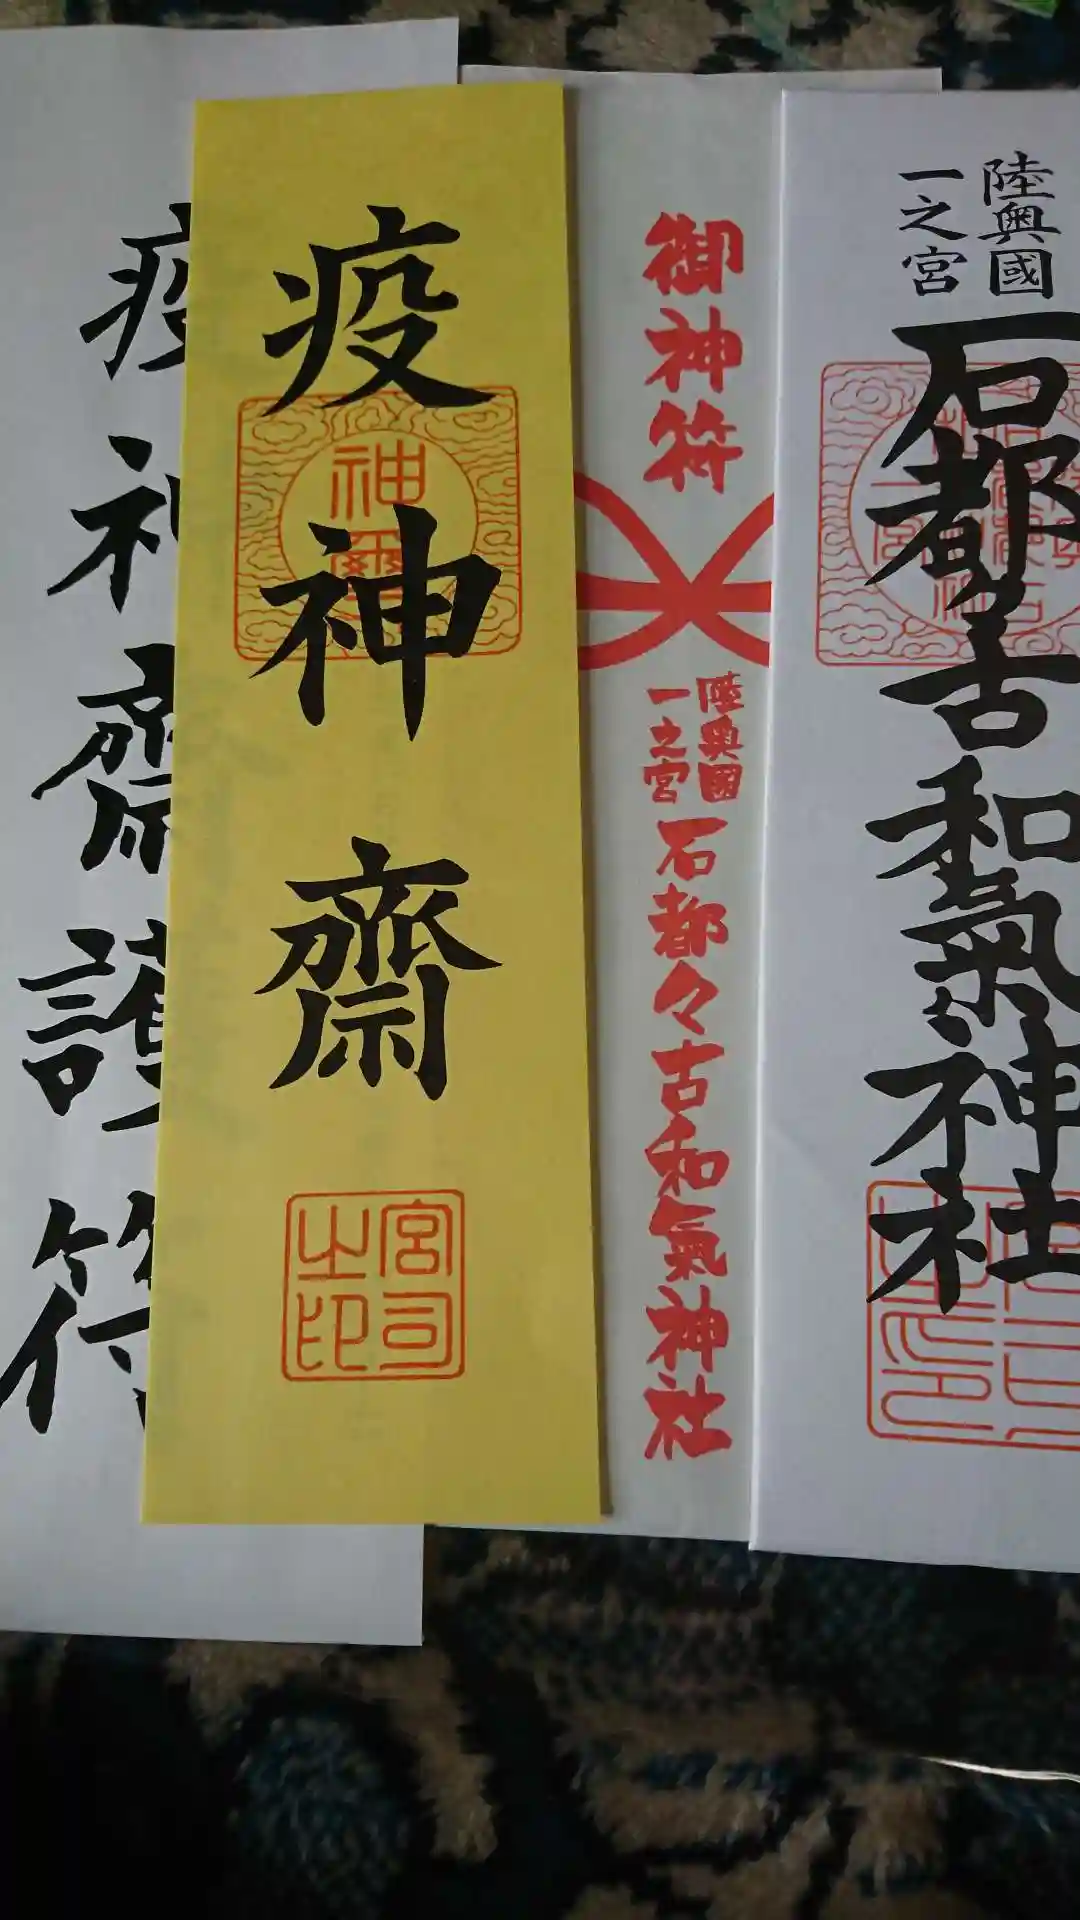 陸奥國
一之宮
石都々古和氣神社
御神符
陸奥國
一之宮
石都々古和氣神社
疫神齋
神璽
宮司
之印
疫神齋護符